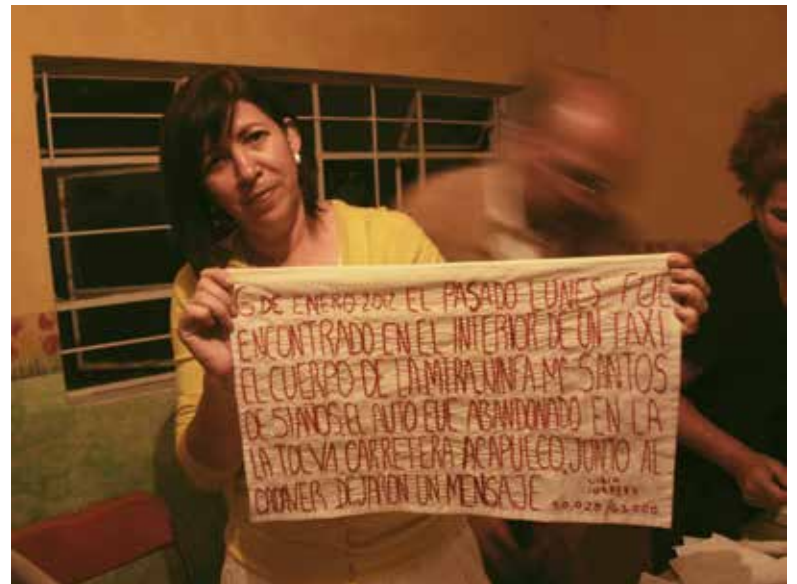 6 DE ENERO 2012 EL PASADO LUNES FUE
ENCONTRADO EN EL INTERIOR DE UN TAXI
EL CUERPO DE SANTOS
DE 51 AÑOS. EL AUTO FUE ABANDONADO EN LA
LA TOLVA CARRETERA ACAPULCO, JUNTO AL
CADAVER DEJARON UN MENSAJE